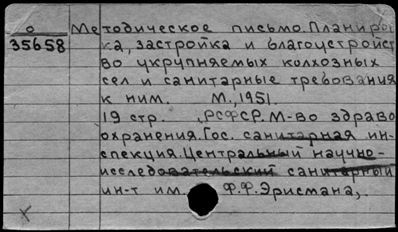 о
35658
Методическое письмо. Планиров
ка, застройка и благоустройст
во укрупняемых колхозных
сел и санитарные требования
к ним. М., 1951.
19 стр. РСФСР. М-во здраво
охранения. Гос. санитарная ин-
спекция. Центральный научно-
исследовательский санитарный
ин-т им. Ф.Ф. Эрисмана,